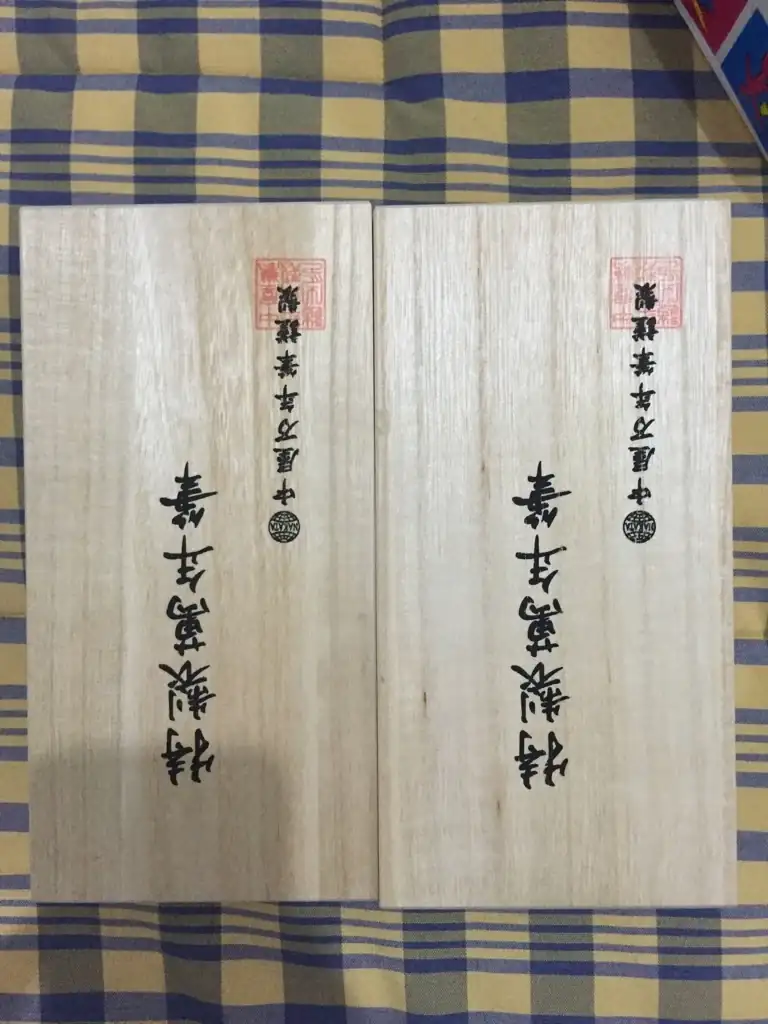 特製萬年筆
NAKAYA
中屋万年筆謹製
特製萬年筆
NAKAYA
中屋万年筆謹製